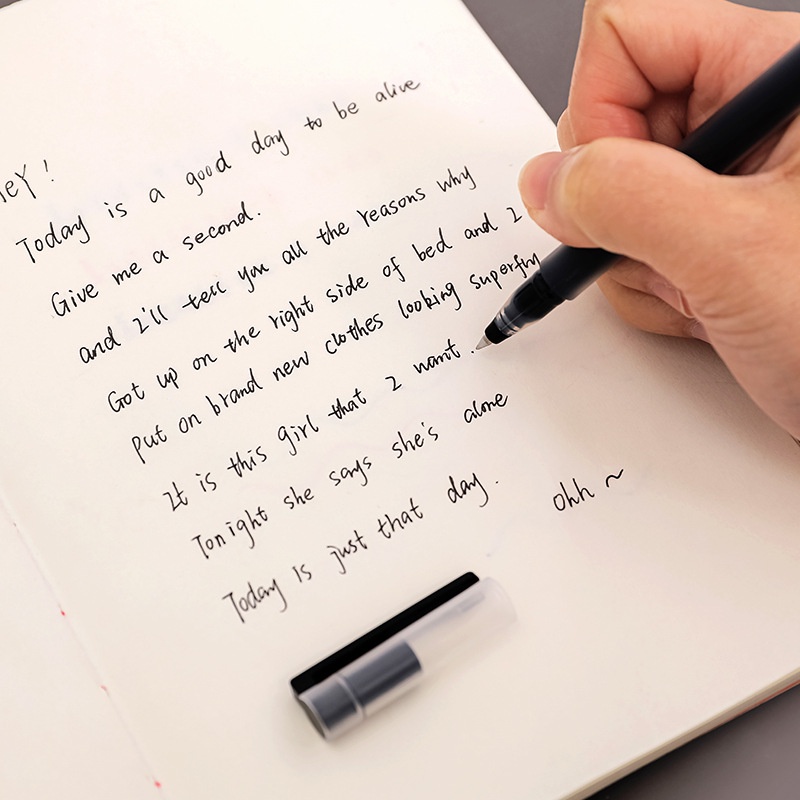 Hey!
Today is a good day to be alive
Give me a second.
and I'll tell you all the reasons why
Got up on the right side of bed and I
Put on brand new clothes looking superfly
It is this girl that I want.
Tonight she says she's alone
Today is just that day. ohh ~